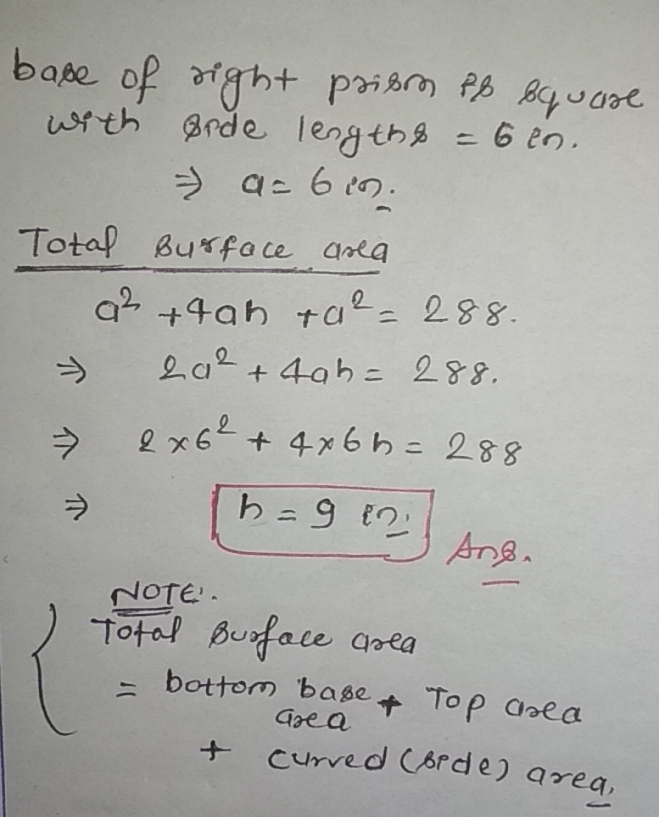 base of right prism is square
with side lengths = 6 in.
⇒ a = 6 in.
Total surface area
a² + 4ah + a² = 288.
⇒ 2a² + 4ah = 288.
⇒ 2×6² + 4×6h = 288
⇒ h = 9 in.
Ans.
NOTE:
Total surface area
= bottom base area + Top area
+ curved (side) area.